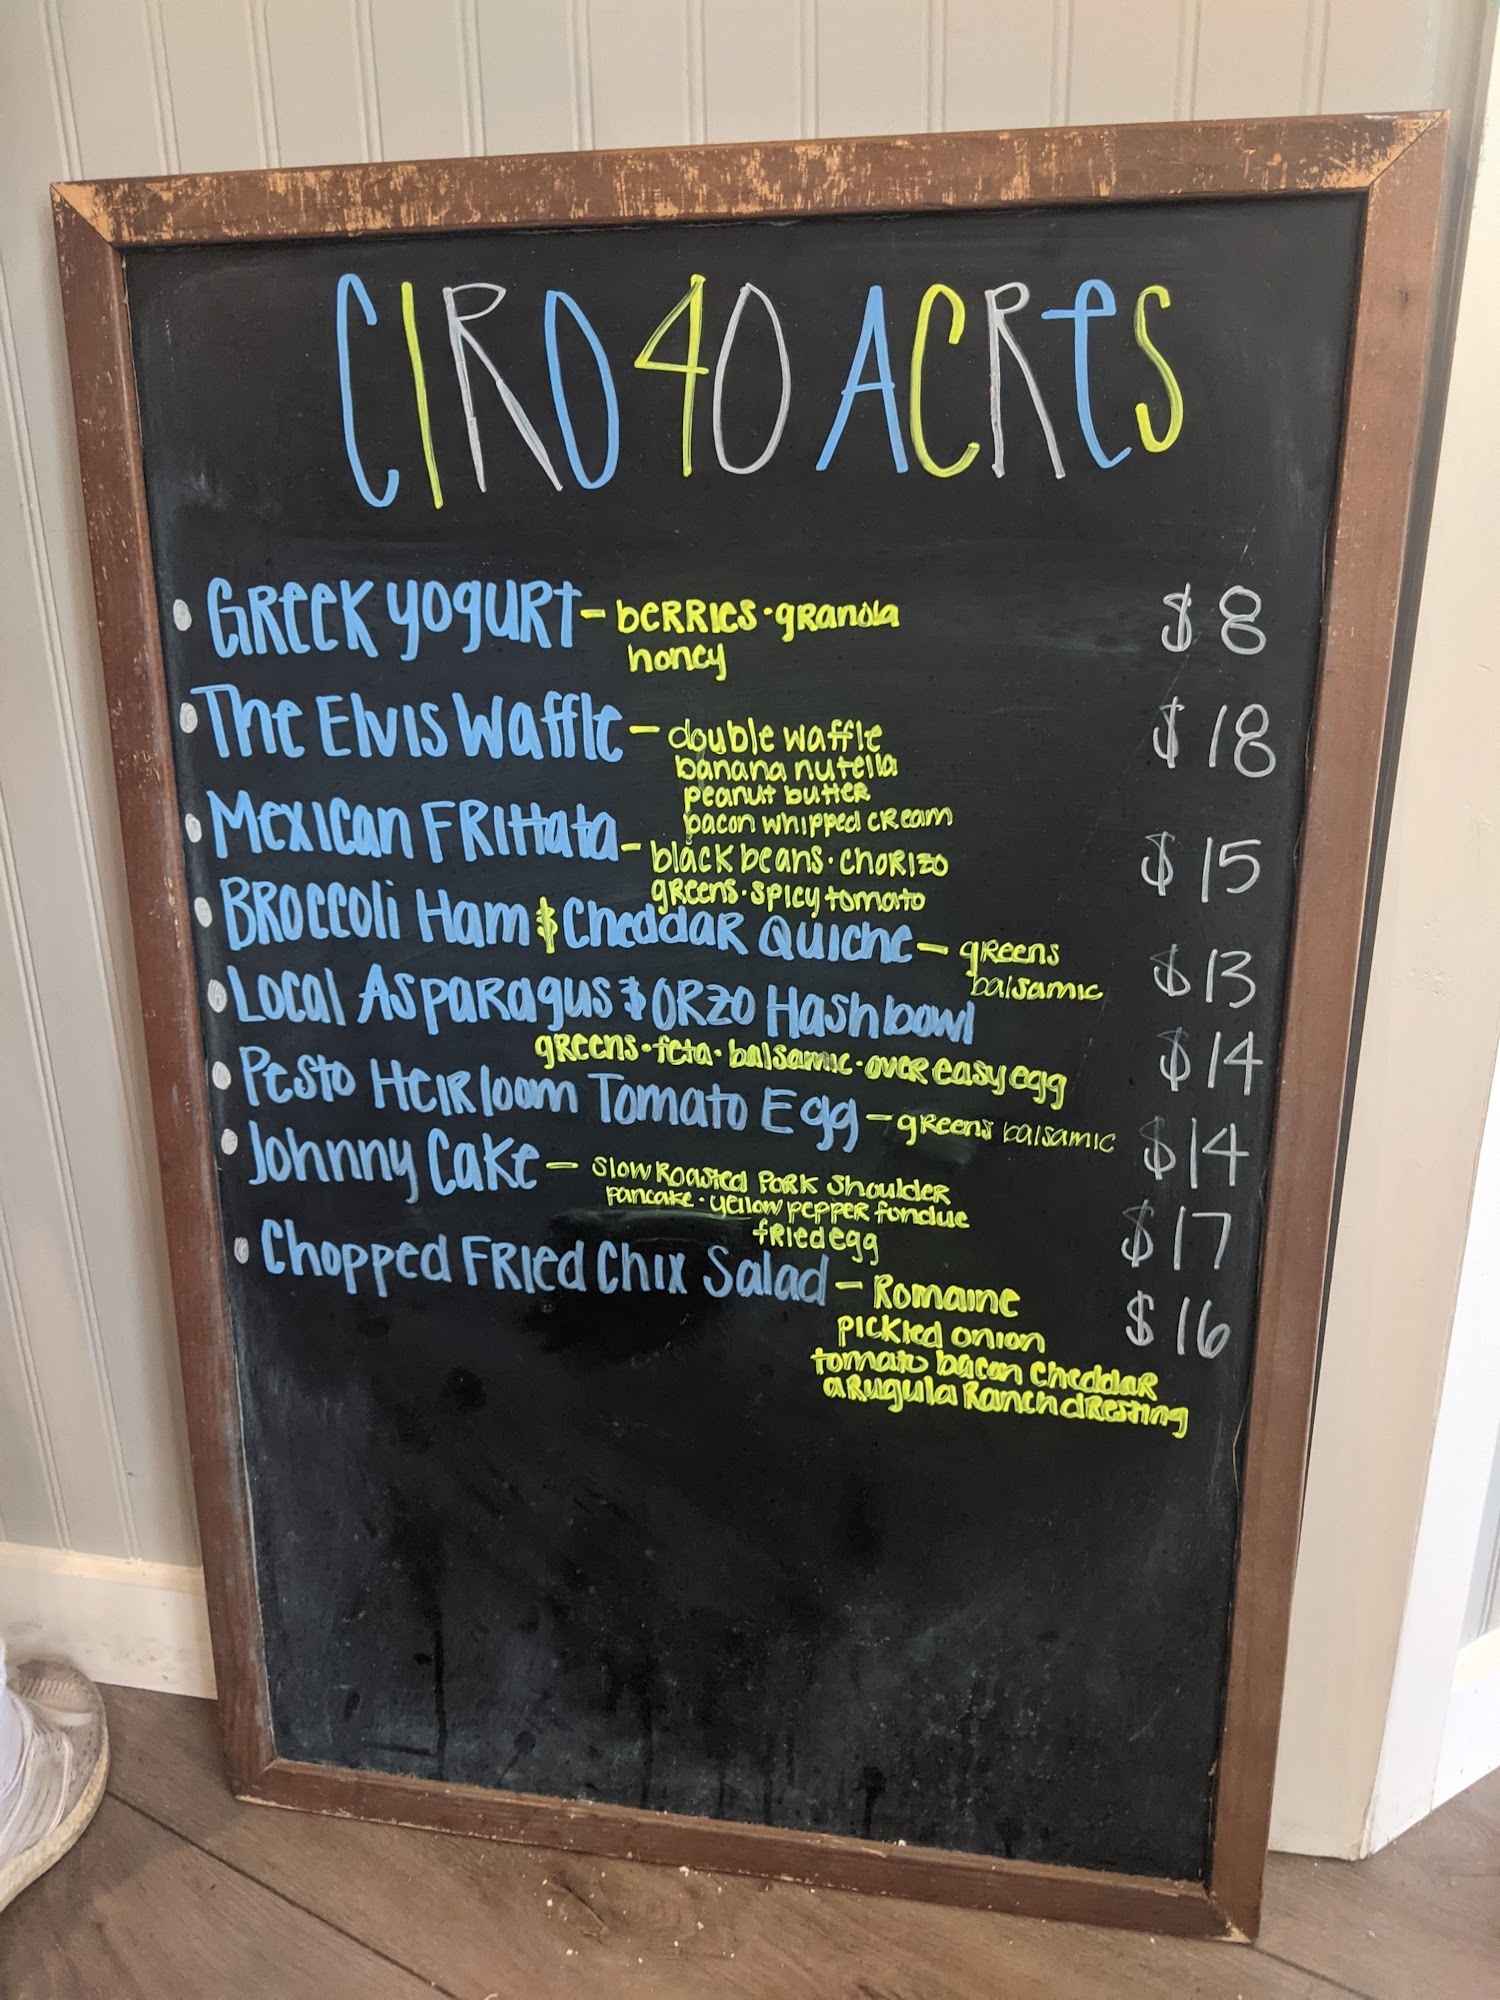 CIRO 40 ACRES
Greek Yogurt - berries · granola $8
honey
The Elvis Waffle - double waffle $18
banana nutella
peanut butter
bacon whipped cream
Mexican Frittata - black beans · chorizo $15
greens · spicy tomato
Broccoli Ham & Cheddar Quiche - greens $13
balsamic
Local Asparagus & Orzo Hashbowl $14
greens · feta · balsamic · over easy egg
Pesto Heirloom Tomato Egg - greens balsamic $14
Johnny Cake - slow roasted pork shoulder $17
pancake · yellow pepper fondue
fried egg
Chopped Fried Chix Salad - Romaine $16
pickled onion
tomato bacon cheddar
arugula Ranch dressing